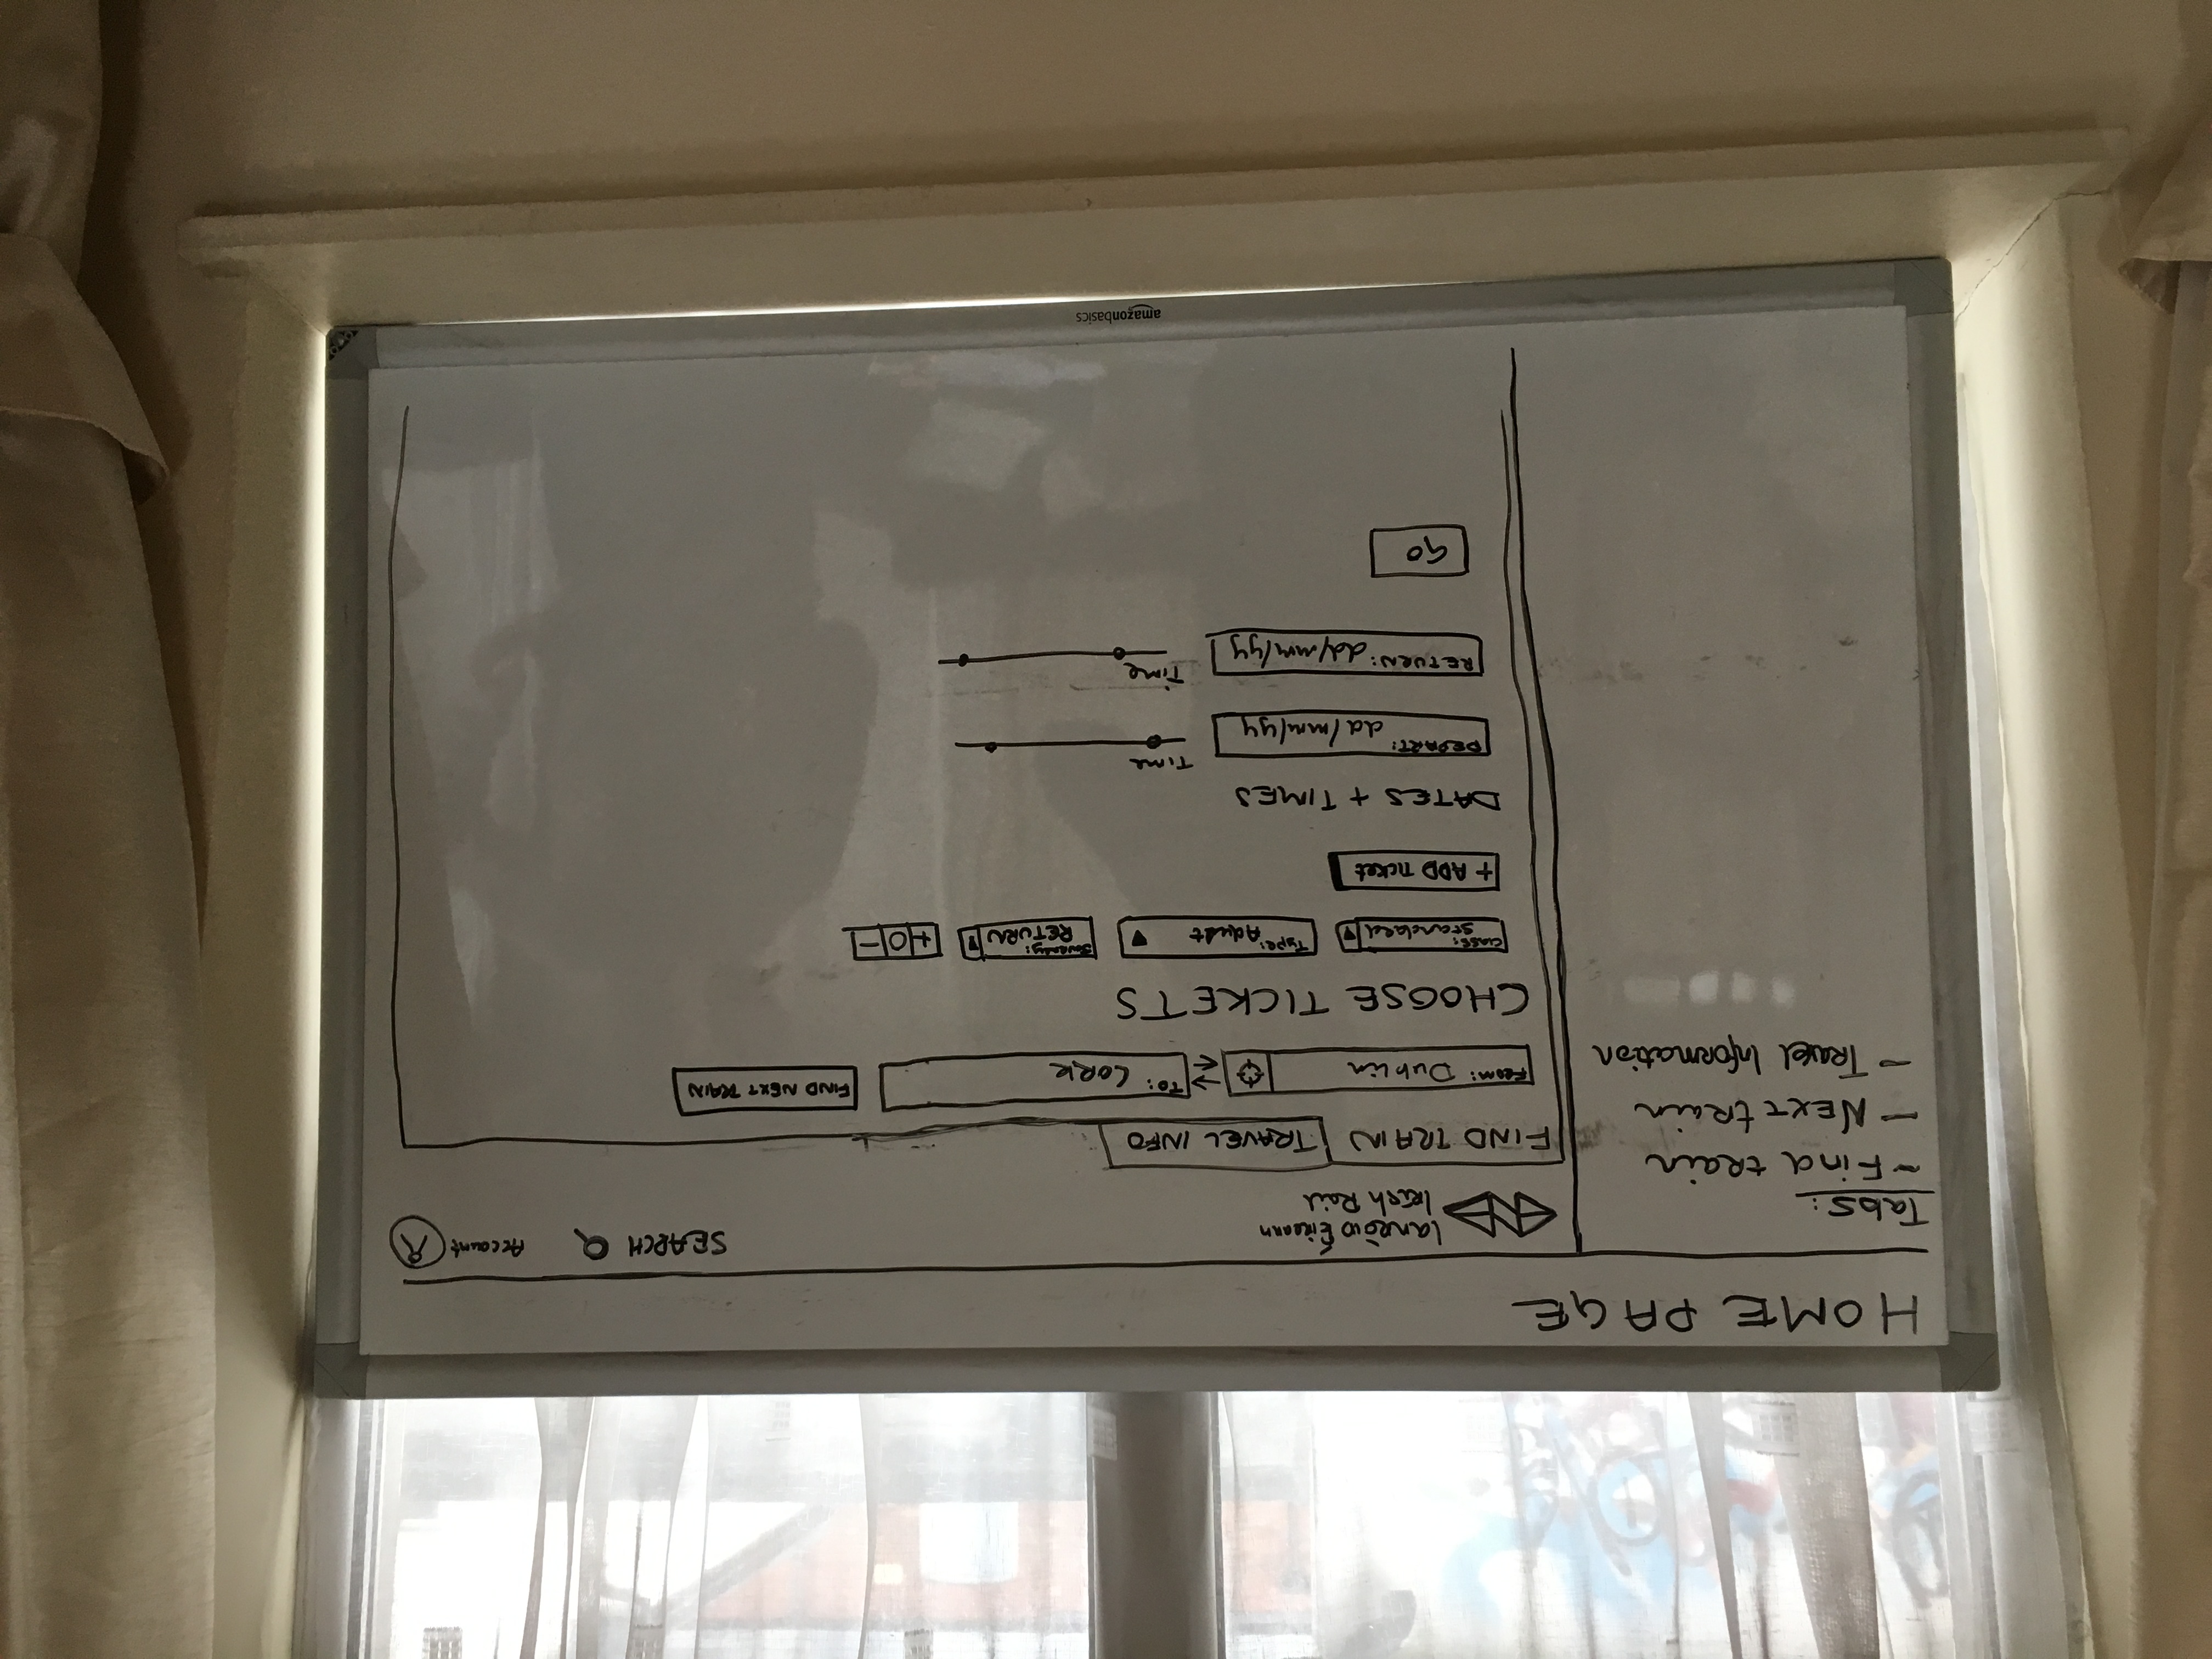 HOME PAGE
Tabs:
~ Find train
- Next train
- Travel Information
Iarnròid Éireann
Irish Rail
SEARCH
Account
FIND TRAIN
TRAVEL INFO
From: Dublin
To: Cork
FIND NEXT TRAIN
CHOOSE TICKETS
Class: Standard
Type: Adult
Journey: RETURN
+ 0 -
+ ADD Ticket
DATES + TIMES
DEPART: dd/mm/yy
Time
RETURN: dd/mm/yy
Time
GO
amazonbasics